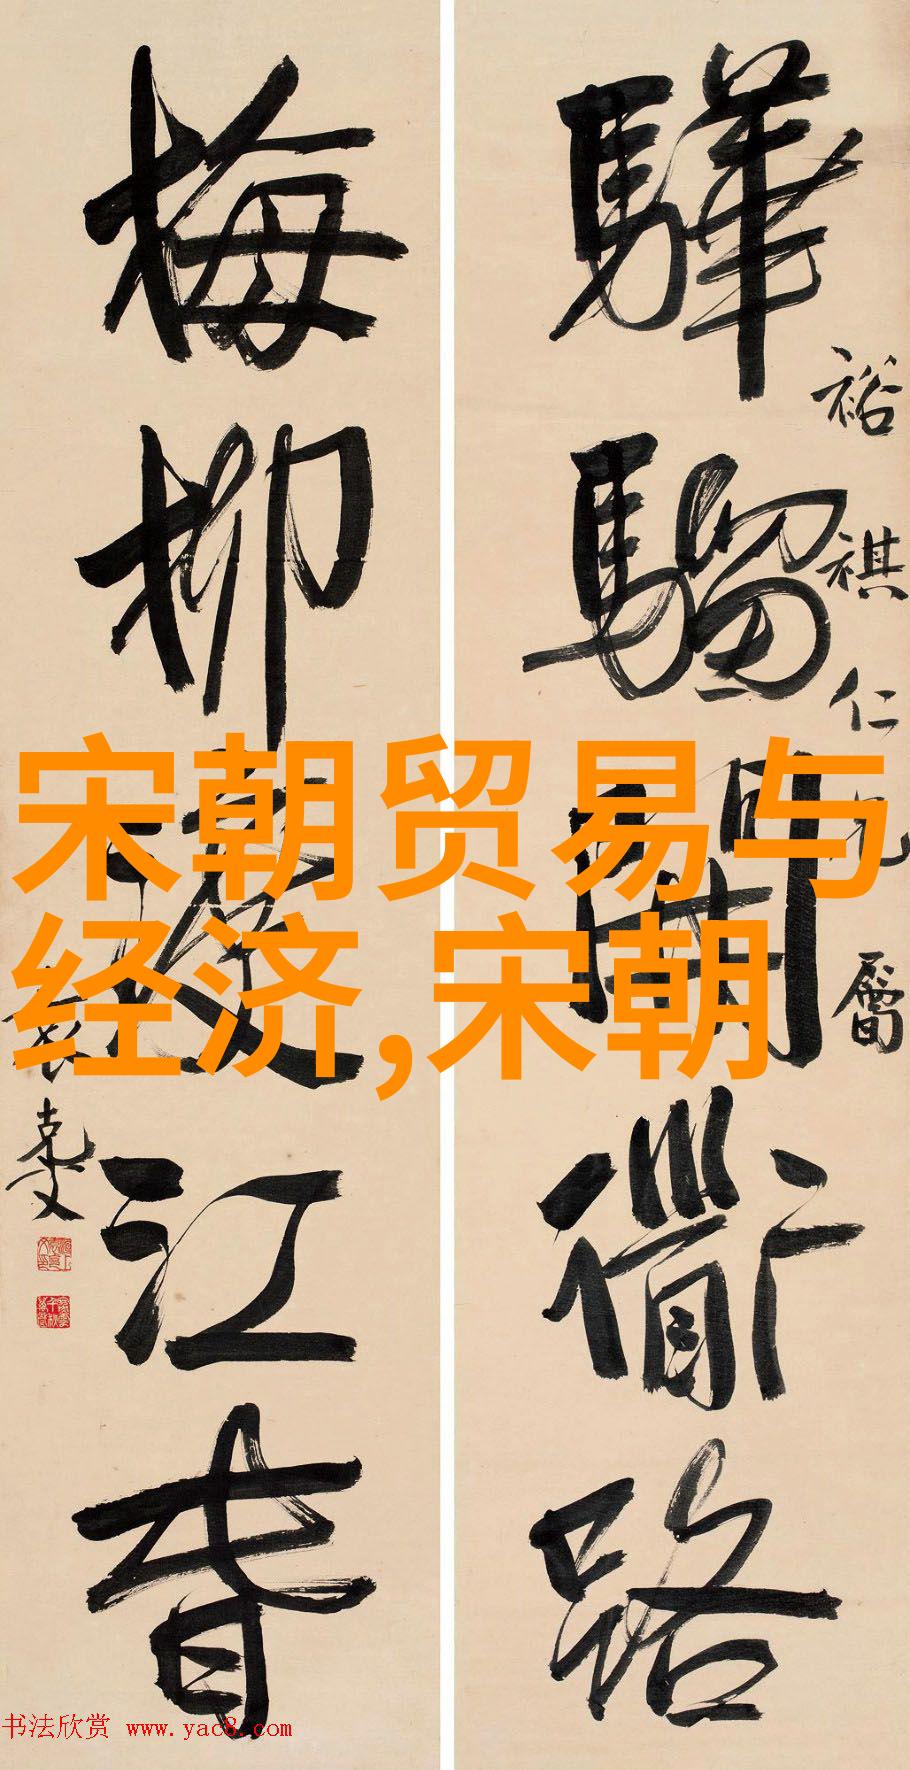 驊騮開衜路
裕祺仁兄屬
梅柳渡江春
袁克文
宋朝贸易与
经济,宋朝
书法欣赏 www.yac8.com